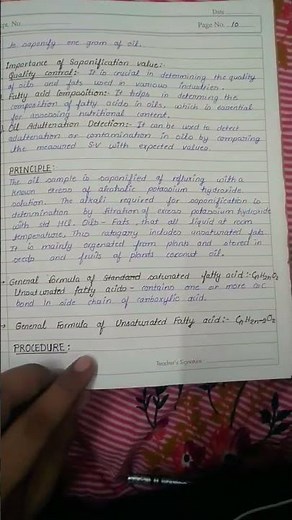 Date
Expt. No.
Page No. 10
to saponify one gram of oil.
Importance of Saponification value:-
Quality control:- It is crucial in determining the quality
of oils and fats used in various industries.
Fatty acid Composition:- It helps in determing the
composition of fatty acids in oils, which is essential
for assessing nutritional content.
Oil Adulteration Detection:- It can be used to detect
adulteration or contamination in oils by comparing
the measured SV with expected values.
PRINCIPLE:
The oil sample is saponified by refluxing with a
known excess of alcoholic potassium hydroxide
solution. The alkali required for saponification is
determination by titration of excess potassium hydroxide
with std HCl. Oils- Fats that all liquid at room
temperature. This category includes unsaturated fats
It is mainly orgenated from plants and stored in
seeds and fruits of plants coconut oil.
General formula of Standard saturated fatty acid:- CnH2nO2
Unsaturated fatty acids - contains one or more C=C
bond in side chain of carboxylic acid.
General Formula of Unsaturated Fatty acid:- CnH2n-2O2
PROCEDURE:
Teacher's Signature